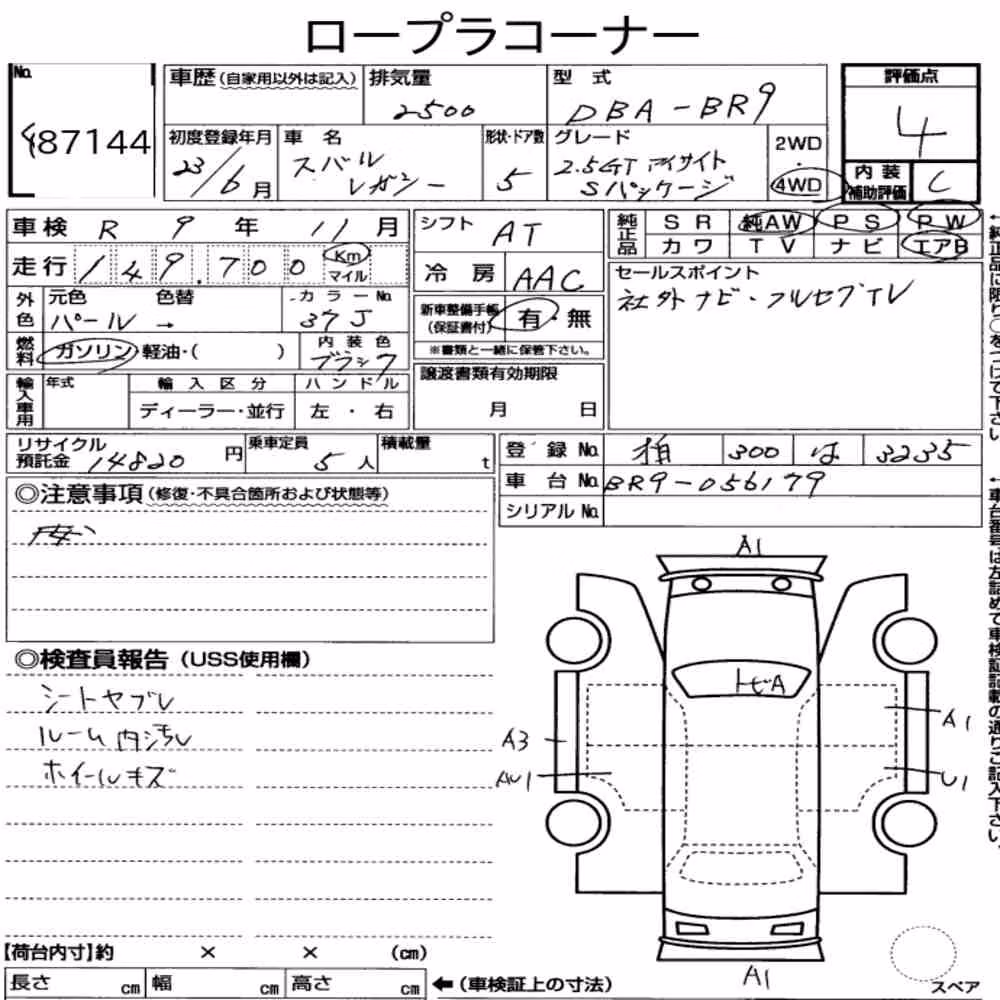 ロープラコーナー
No. 87144
車歴(自家用以外は記入)
排気量 2500
型式 DBA-BR9
評価点 4
初度登録年月 23/6月
車名 スバル レガシー
形状・ドア数 5
グレード 2.5GT アイサイト Sパッケージ
2WD・4WD
内装補助評価 C
車検 R 9年 11月
シフト AT
純正品 SR 純AW PS PW
カワ TV ナビ エアB
走行 149.700 Km マイル
冷房 AAC
セールスポイント
社外ナビ・フルセグTV
外色 元色 パール 色替 → カラーNo. 37J
新車整備手帳(保証書付) 有・無
※書類と一緒に保管下さい。
燃料 ガソリン・軽油・( )
内装色 ブラック
譲渡書類有効期限
月 日
輸入車用 年式 輸入区分 ハンドル
ディーラー・並行 左・右
リサイクル預託金 14820円
乗車定員 5人
積載量 t
登録No. 柏 300 は 3235
車台No. BR9-056179
シリアルNo.
◎注意事項(修復・不具合箇所および状態等)
◎検査員報告(USS使用欄)
シートヤブレ
ルーム内汚レ
ホイールキズ
A1
トビA
A3
A1
AU1
U1
A1
【荷台内寸】約 × × (cm)
長さ cm 幅 cm 高さ cm
←(車検証上の寸法)
スペア
←純正品に限り○をつけて下さい
←車台番号は左詰めで車検証記載の通りご記入下さい。